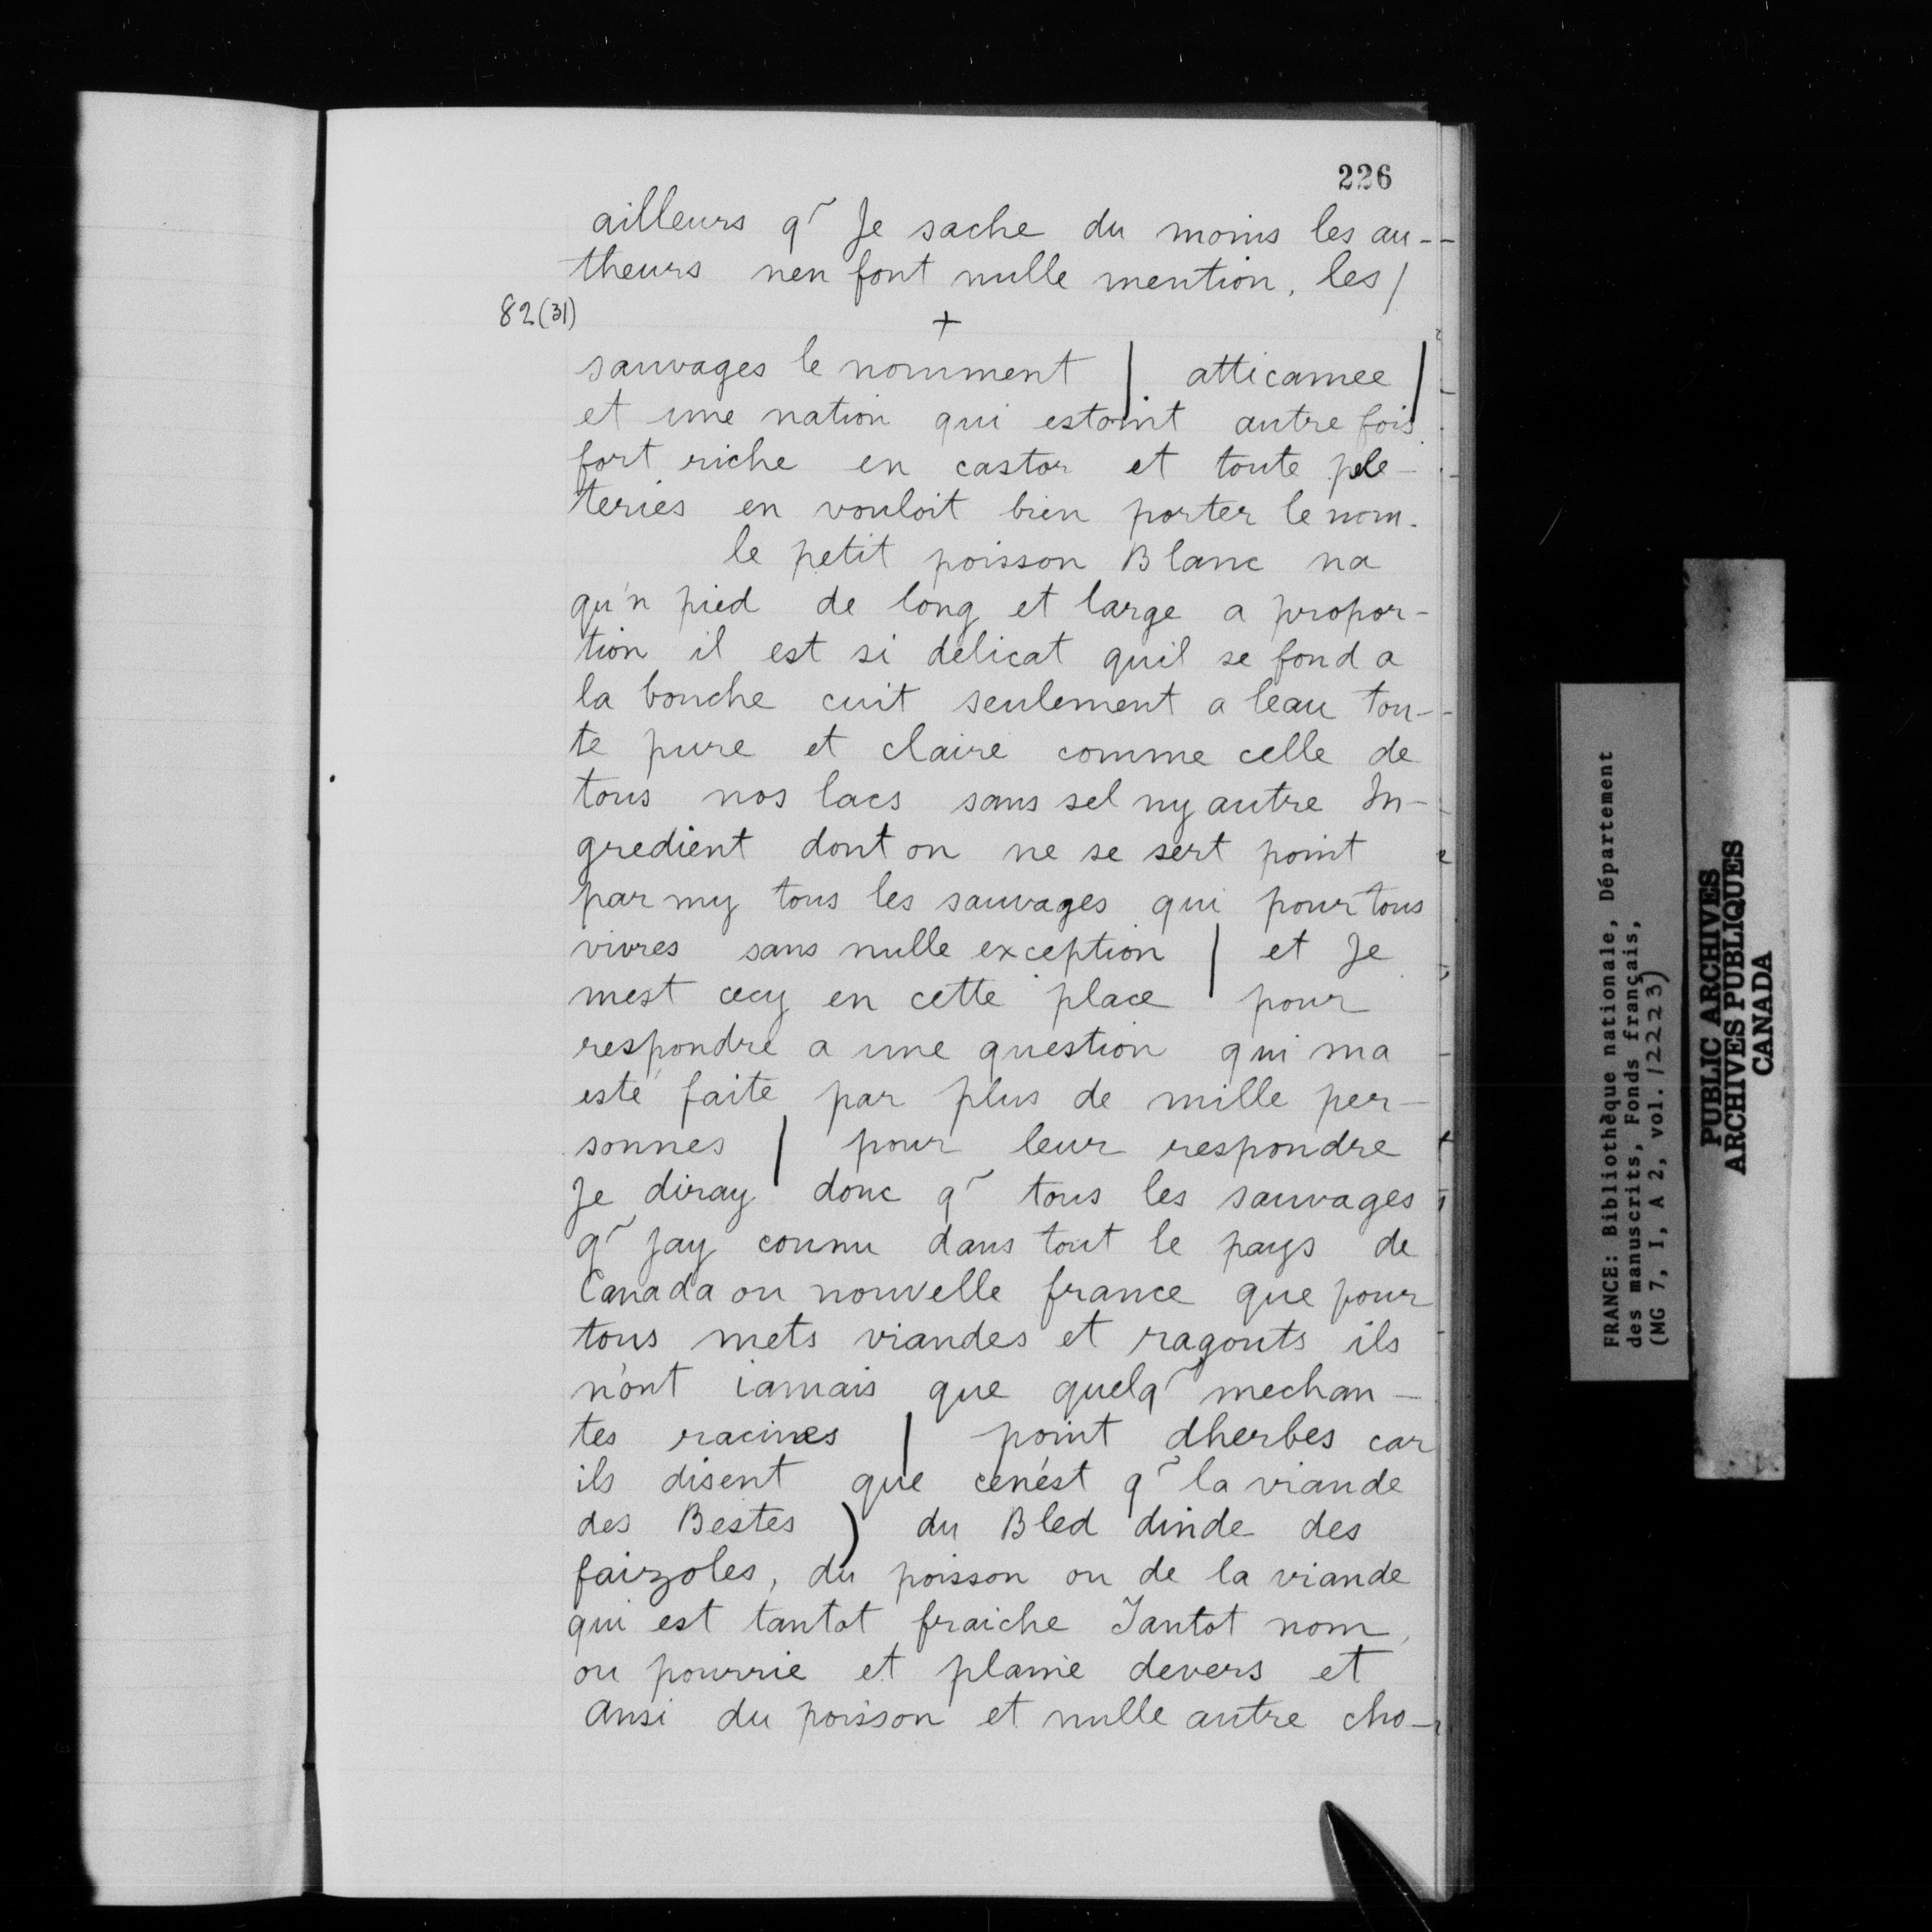 226
ailleurs q̃ Je sache du moins les au-
theurs nen font nulle mention. les /
82 (31)
+
sauvages le nomment | atticamee |
et une nation qui estoint autre fois
fort riche en castor et toute pele-
teries en vouloit bien porter le nom.
le petit poisson Blanc na
qu'n pied de long et large a propor-
tion il est si delicat quil se fond a
la bouche cuit seulement a leau tou-
te pure et claire comme celle de
tous nos lacs sans sel ny autre In-
gredient dont on ne se sert point
par my tous les sauvages qui pour tous
vivres sans nulle exception | et Je
mest cecy en cette place | pour
respondre a une question qui ma
esté faite par plus de mille per-
sonnes | pour leur respondre
Je diray donc q̃ tous les sauvages
q̃ Jay connu dans tout le pays de
Canada ou nouvelle france que pour
tous mets viandes et ragouts ils
n'ont iamais que quelq̃ mechan-
tes racines | point dherbes car
ils disent que cenést q̃ la viande
des Bestes ) du Bled dinde des
faizoles, du poisson ou de la viande
qui est tantot fraiche Tantot nom,
ou pourrie et plaine devers et
Ansi du poisson et nulle autre cho-
FRANCE: Bibliothèque nationale, Département
des manuscrits, Fonds français,
(MG 7, I, A 2, vol. 12223)
PUBLIC ARCHIVES
ARCHIVES PUBLIQUES
CANADA